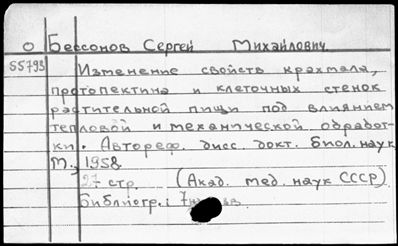 О Бессонов Сергей Михайлович.
55793 Изменение свойств крахмала,
протопектина и клеточных стенок
растительной пищи под влиянием
тепловой и механической обработ-
ки. Автореф. дисс. докт. биол. наук
М., 1958
27 стр. (Акад. мед. наук СССР)
Библиогр.: 7